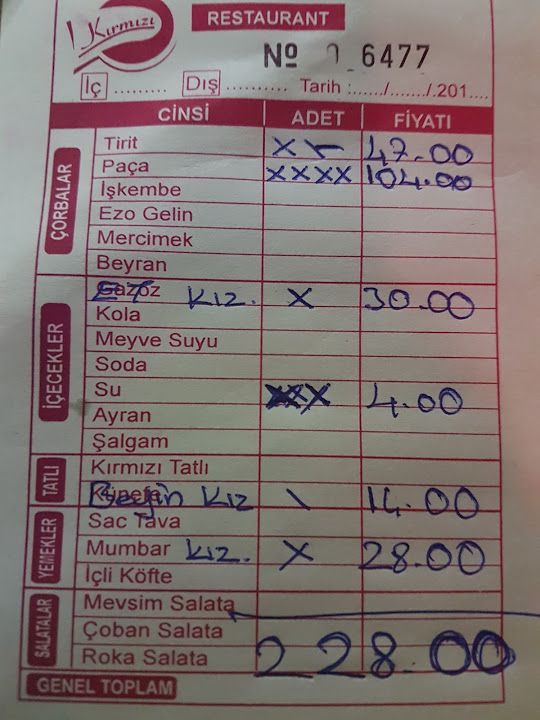 Kırmızı
RESTAURANT
Nº 0 6477
İç ......... Dış .......... Tarih :....../......./.201....
CİNSİ ADET FİYATI
ÇORBALAR
Tirit 47.00
Paça xxxx 104.00
İşkembe
Ezo Gelin
Mercimek
Beyran
İÇECEKLER
Gazoz ET KIZ. x 30.00
Kola
Meyve Suyu
Soda
Su xxx 4.00
Ayran
Şalgam
TATLI
Kırmızı Tatlı
Künefe Beyin KIZ \ 14.00
YEMEKLER
Sac Tava
Mumbar KIZ. x 28.00
İçli Köfte
SALATALAR
Mevsim Salata
Çoban Salata
Roka Salata
228.00
GENEL TOPLAM